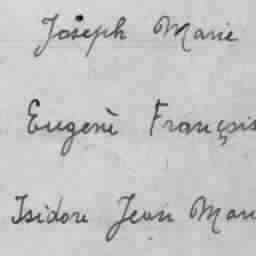 Joseph Marie
Eugenè François
Isidore Jean Mari